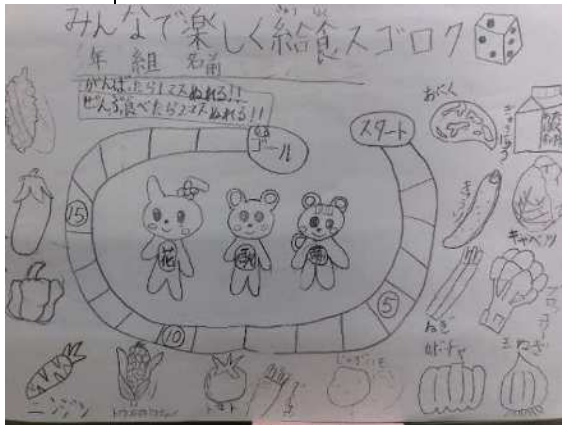 みんなで楽しく給食スゴロク
年 組 名前
がんばったら1マスぬれる!!
ぜんぶ食べたら2マスぬれる!!
ゴール
スタート
おにく
ぎゅうにゅう
きゅうり
キャベツ
ねぎ
ブロッコリー
カボチャ
玉ねぎ
じゃがいも
トマト
トウモロコシ
ニンジン
⑤
⑩
⑮
花